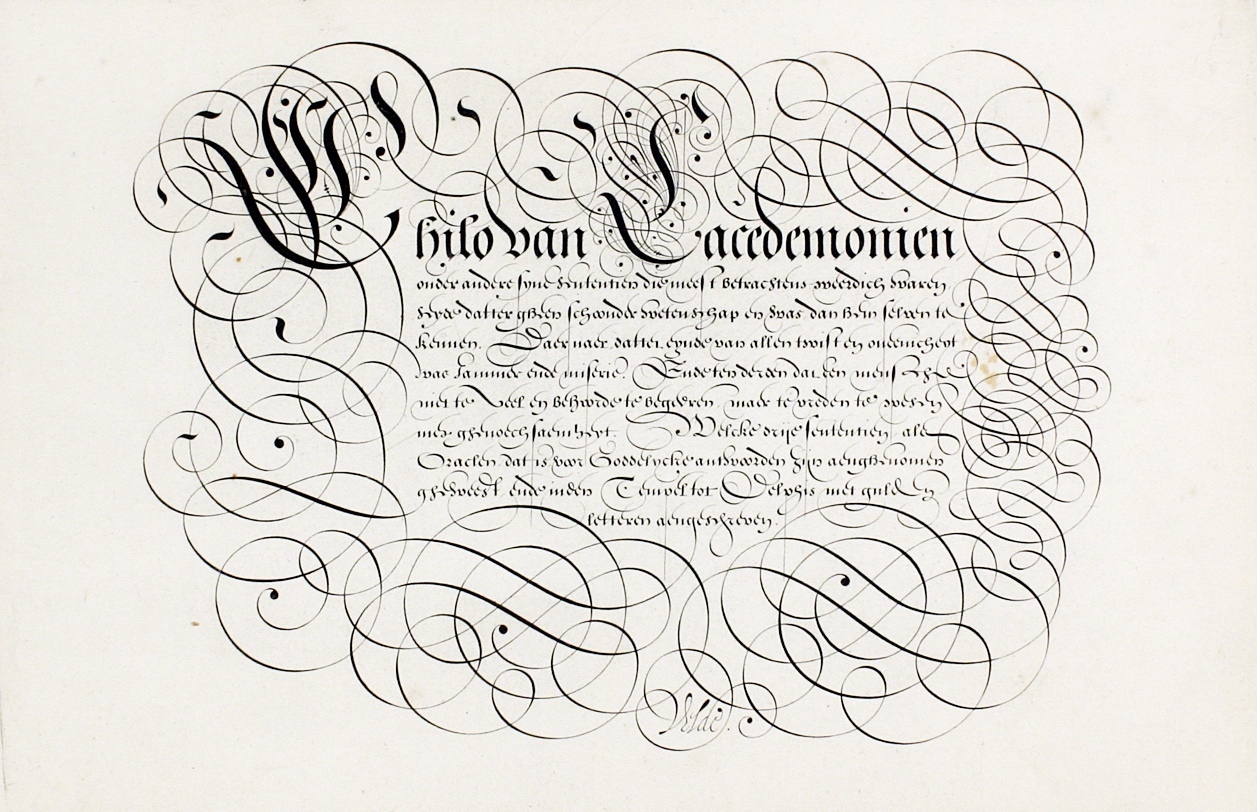 Chilo van Lacedemonien
onder andere syne sententien die meest betrachtens weerdich waren,
seyde datter gheen schoonder wetenschap en was dan hem selven te
kennen. Daer naer dattet eynde van allen twist en oneenicheyt
was Jammer ende miserie. Ende ten derden dat een mensche
niet te veel en behoorde te begeeren, maer te vreden te wesen
met ghenoechsaemheyt. Welcke drije sententien als
Oraclen, dat is voor Goddelycke antwoorden zijn aenghenomen
gheweest, ende inden Tempel tot Delphis met gulden
letteren aengeschreven.
Velde.